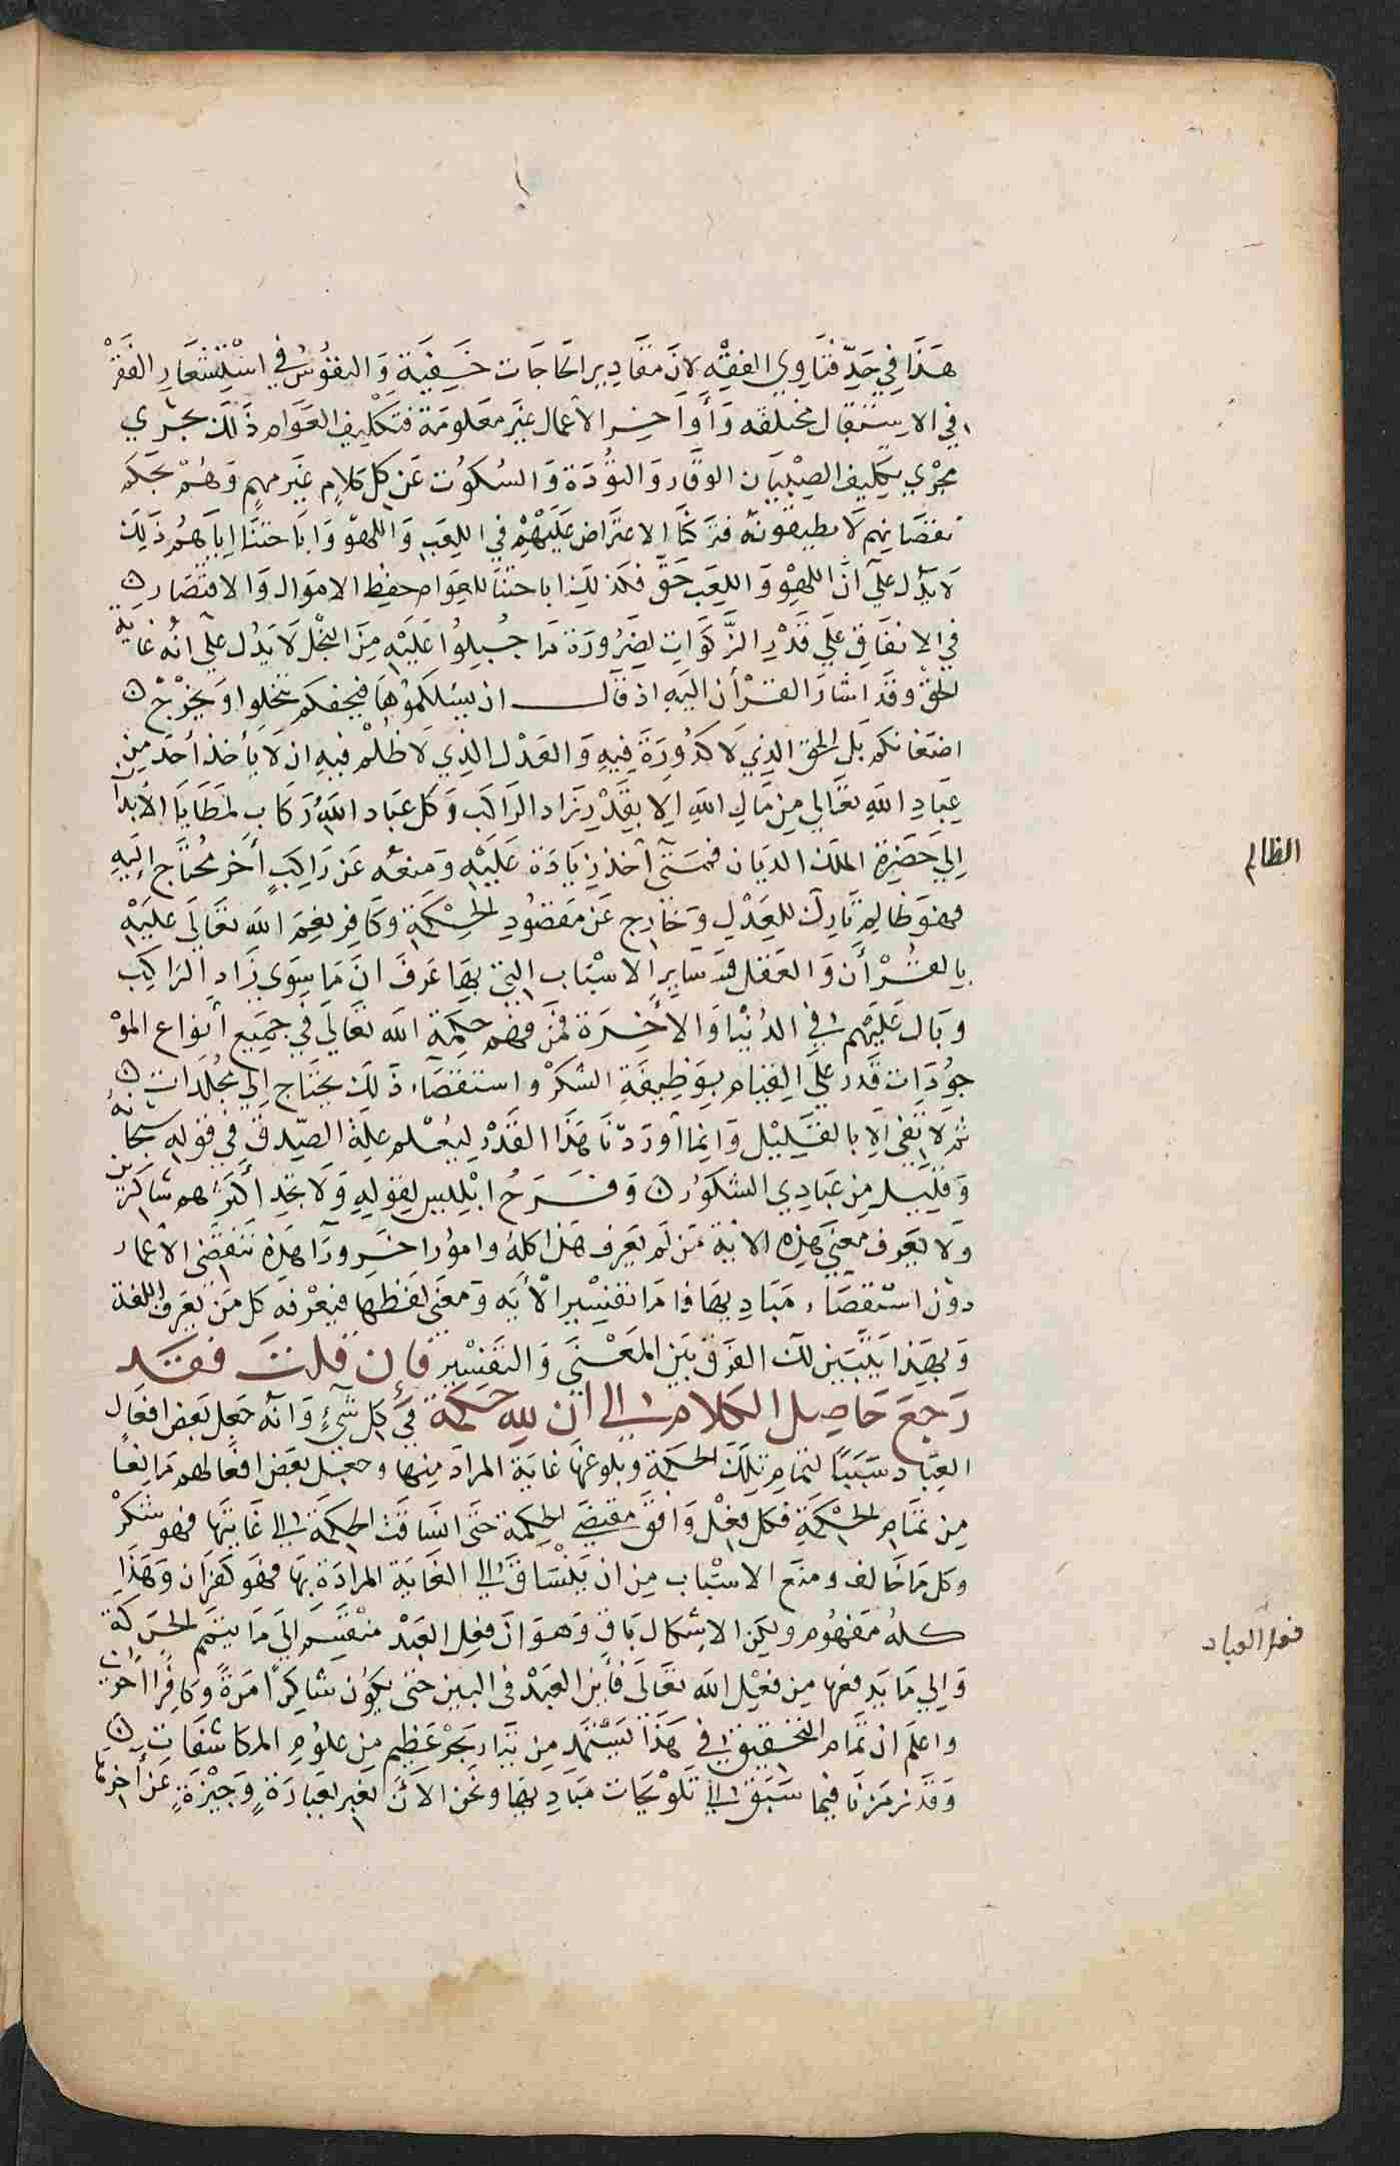 هذا في حد فتاوي الفقه لان مقادير الحاجات خفية والنفوس في استشعار الفقر
في الاستقبال مختلفه وأواخر الأعمال غير معلومة فتكليف العوام ذلك يجري
مجري تكليف الصبيان الوقار والتؤدة والسكوت عن كل كلام غير مهم وهم بحكم
نقصانهم لا يطيقونه فتركنا الاعتراض عليهم في اللعب واللهو واباحتنا اياهم ذلك
لا يدل علي ان اللهو واللعب حق فكذلك اباحتنا للعوام حفظ الاموال والاقتصار
في الانفاق علي قدر الزكوات لضرورة ما جبلوا عليه من البخل لا يدل علي انه غاية
الحق وقد اشار القرأن اليه اذ قال ان يسئلكموها فيحفكم تبخلوا ويخرج
اضغانكم بل الحق الذي لا كدورة فيه والعدل الذي لا ظلم فيه ان لا يأخذ أحد من
عباد الله تعالي من مال الله الا بقدر زاد الراكب وكل عباد الله ركاب لمطايا الأبدان
الي حضرة الملك الديان فمن أخذ زيادة عليه ومنعه عن راكب أخر محتاج إليه
فهو ظالم تارك للعدل وخارج عن مقصود الحكمة وكافر نعم الله تعالي عليه
بالقرأن والعقل وساير الاسباب التي بها عرف ان ما سوي زاد الراكب
وبال عليهم في الدنيا والأخرة فمن فهم حكمة الله تعالي في جميع أنواع المو
جودات قدر علي القيام بوظيفة الشكر واستقصاء ذلك يحتاج الي مجلدات
ثم لا تفي الا بالقليل وانما أوردنا هذا القدر ليعلم علة الصدق في قوله سبحانه
وقليل من عبادي الشكور وفرح ابليس لقوله ولا تجد أكثرهم شاكرين
ولا يعرف معني هذه الاية من لم يعرف هذا كله وامورا اخر ورآ هذه تنقضي الأعمار
دون استقصاء مباديها فاما تفسير الأيه ومعني لفظها فيعرفه كل من يعرف اللغة
وبهذا يتبين لك الفرق بين المعني والتفسير فإن قلت فقد
رجع حاصل الكلام الي ان لله حكمة في كل شيء وأنه جعل بعض افعال
العباد سببا لتمام تلك الحكمة وبلوغها غاية المراد منها وجعل بعض افعالهم مانعا
من تمام الحكمة فكل فعل وافق مقتضي الحكمة حتي انساقت الحكمة الي غايتها فهو شكر
وكل ما خالف ومنع الاسباب من ان ينساق الي الغاية المرادة بها فهو كفران وهذا
كله مفهوم ولكن الاشكال باق وهو ان فعل العبد منقسم الي ما يتمم الحكمة
والي ما يدفعها من فعل الله تعالي فأين العبد في البين حتي يكون شاكرا مرة وكافرا أخري
واعلم ان تمام التحقيق في هذا يستمد من تيار بحر عظيم من علوم المكاشفات
وقد رمزنا فيما سبق الي تلويحات مباديها ونحن الأن نعبر بعبارة وجيزة عن أخرها
الظالم
فعل العباد